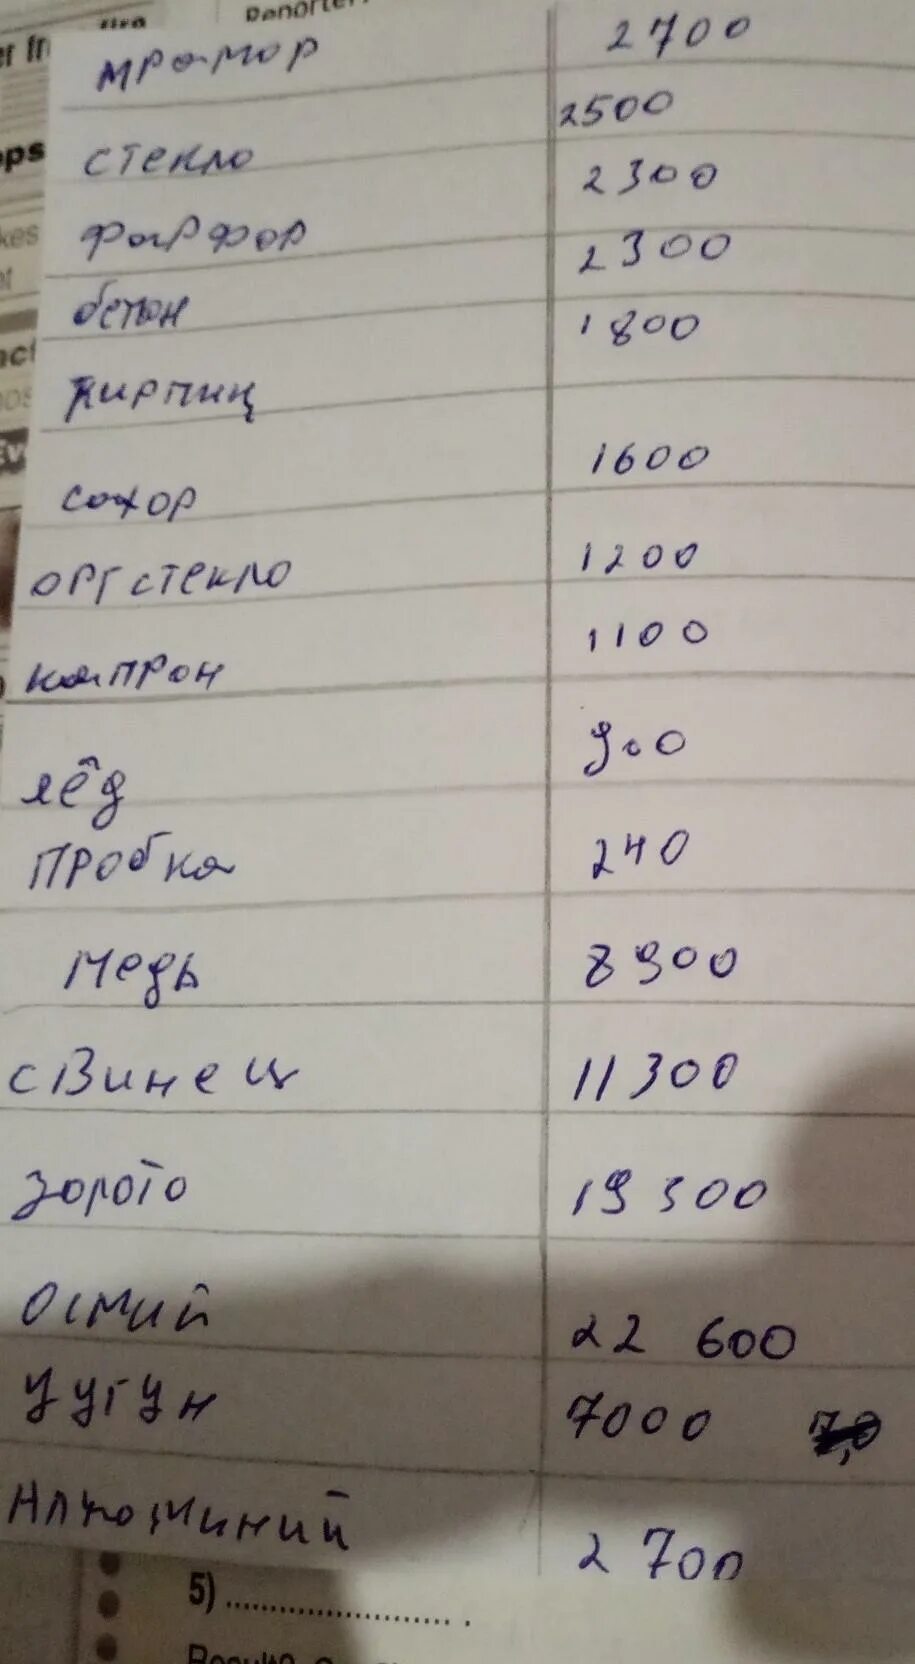 мрамор 2700
стекло 2500
фарфор 2300
бетон 2300
кирпич 1800
сахор 1600
оргстекло 1200
капрон 1100
лёд 900
пробка 240
медь 8900
свинец 11300
золото 19300
осмий 22 600
чугун 7000 7,0
Алюминий 2700
5) ............................ .